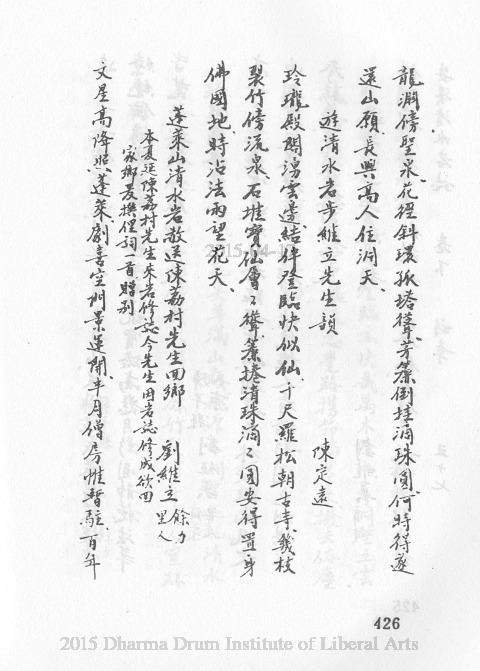 龍渊傍聖泉、花徑斜環孤塔聳、芳簾倒挂滴珠圓、何時得遂
還山願、長與高人住洞天、
遊清水岩步維立先生韻
陳定遠
玲瓏殿閣湧雲邊、結伴登臨快似仙、千尺羅松朝古寺、幾枝
裂竹傍流泉、石堆寶仙層々聳、簾捲清珠滴々圓、安得置身
佛國地、時沾法雨望花天、
蓬萊山清水岩敬送陳荔村先生回鄉
劉維立 餘力里人
本夏延陳荔村先生來岩修誌今先生因岩誌修成欲回
家鄉爰撰俚詞一首贈别
文星高降照蓬萊、劇喜空門景運開、半月僧房惟暫駐、百年
426
2015 Dharma Drum Institute of Liberal Arts